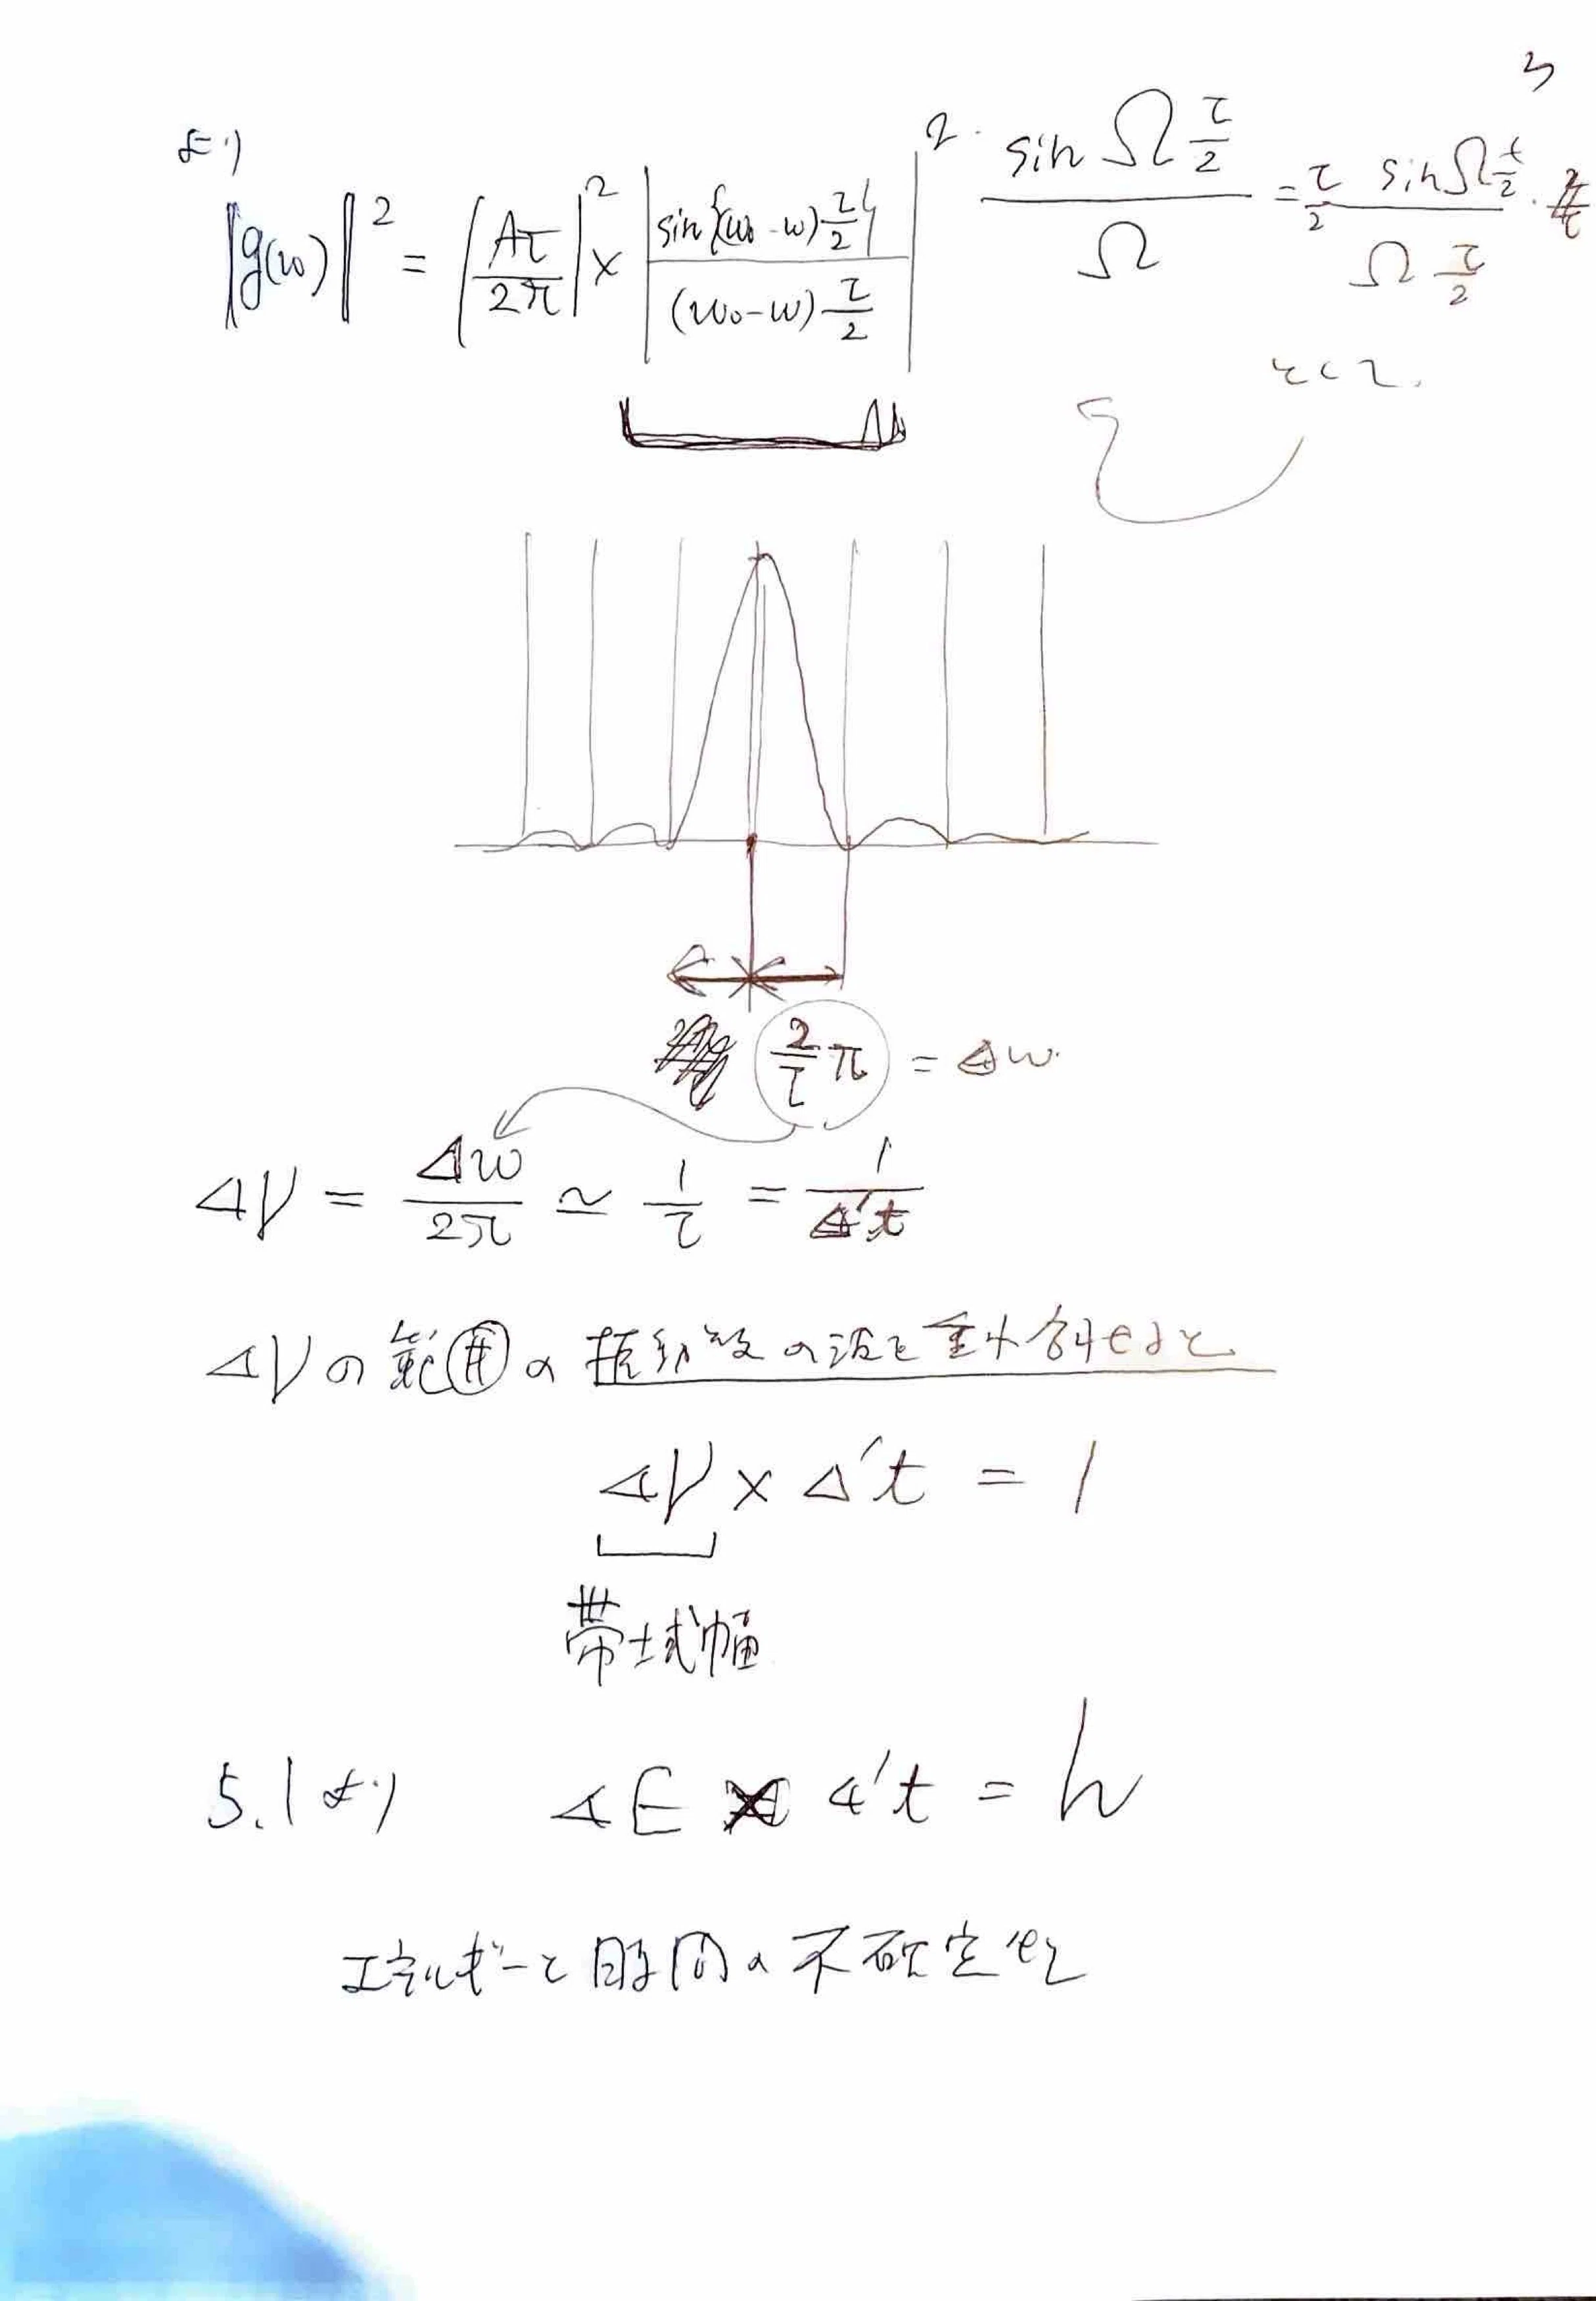 3
より
|g(ω)|² = |Aτ/2π|² × |sin{(ω₀-ω)τ/2}/(ω₀-ω)τ/2|²
sinΩτ/2 / Ω = τ/2 sinΩτ/2 / Ωτ/2
として.
2/τ π = Δω
Δν = Δω/2π ≃ 1/τ = 1/Δ't
Δνの範囲の振動数の波を重ね合わせると
Δν × Δ't = 1
帯域幅
5.1より ΔE Δ't = h
エネルギーと時間の不確定性